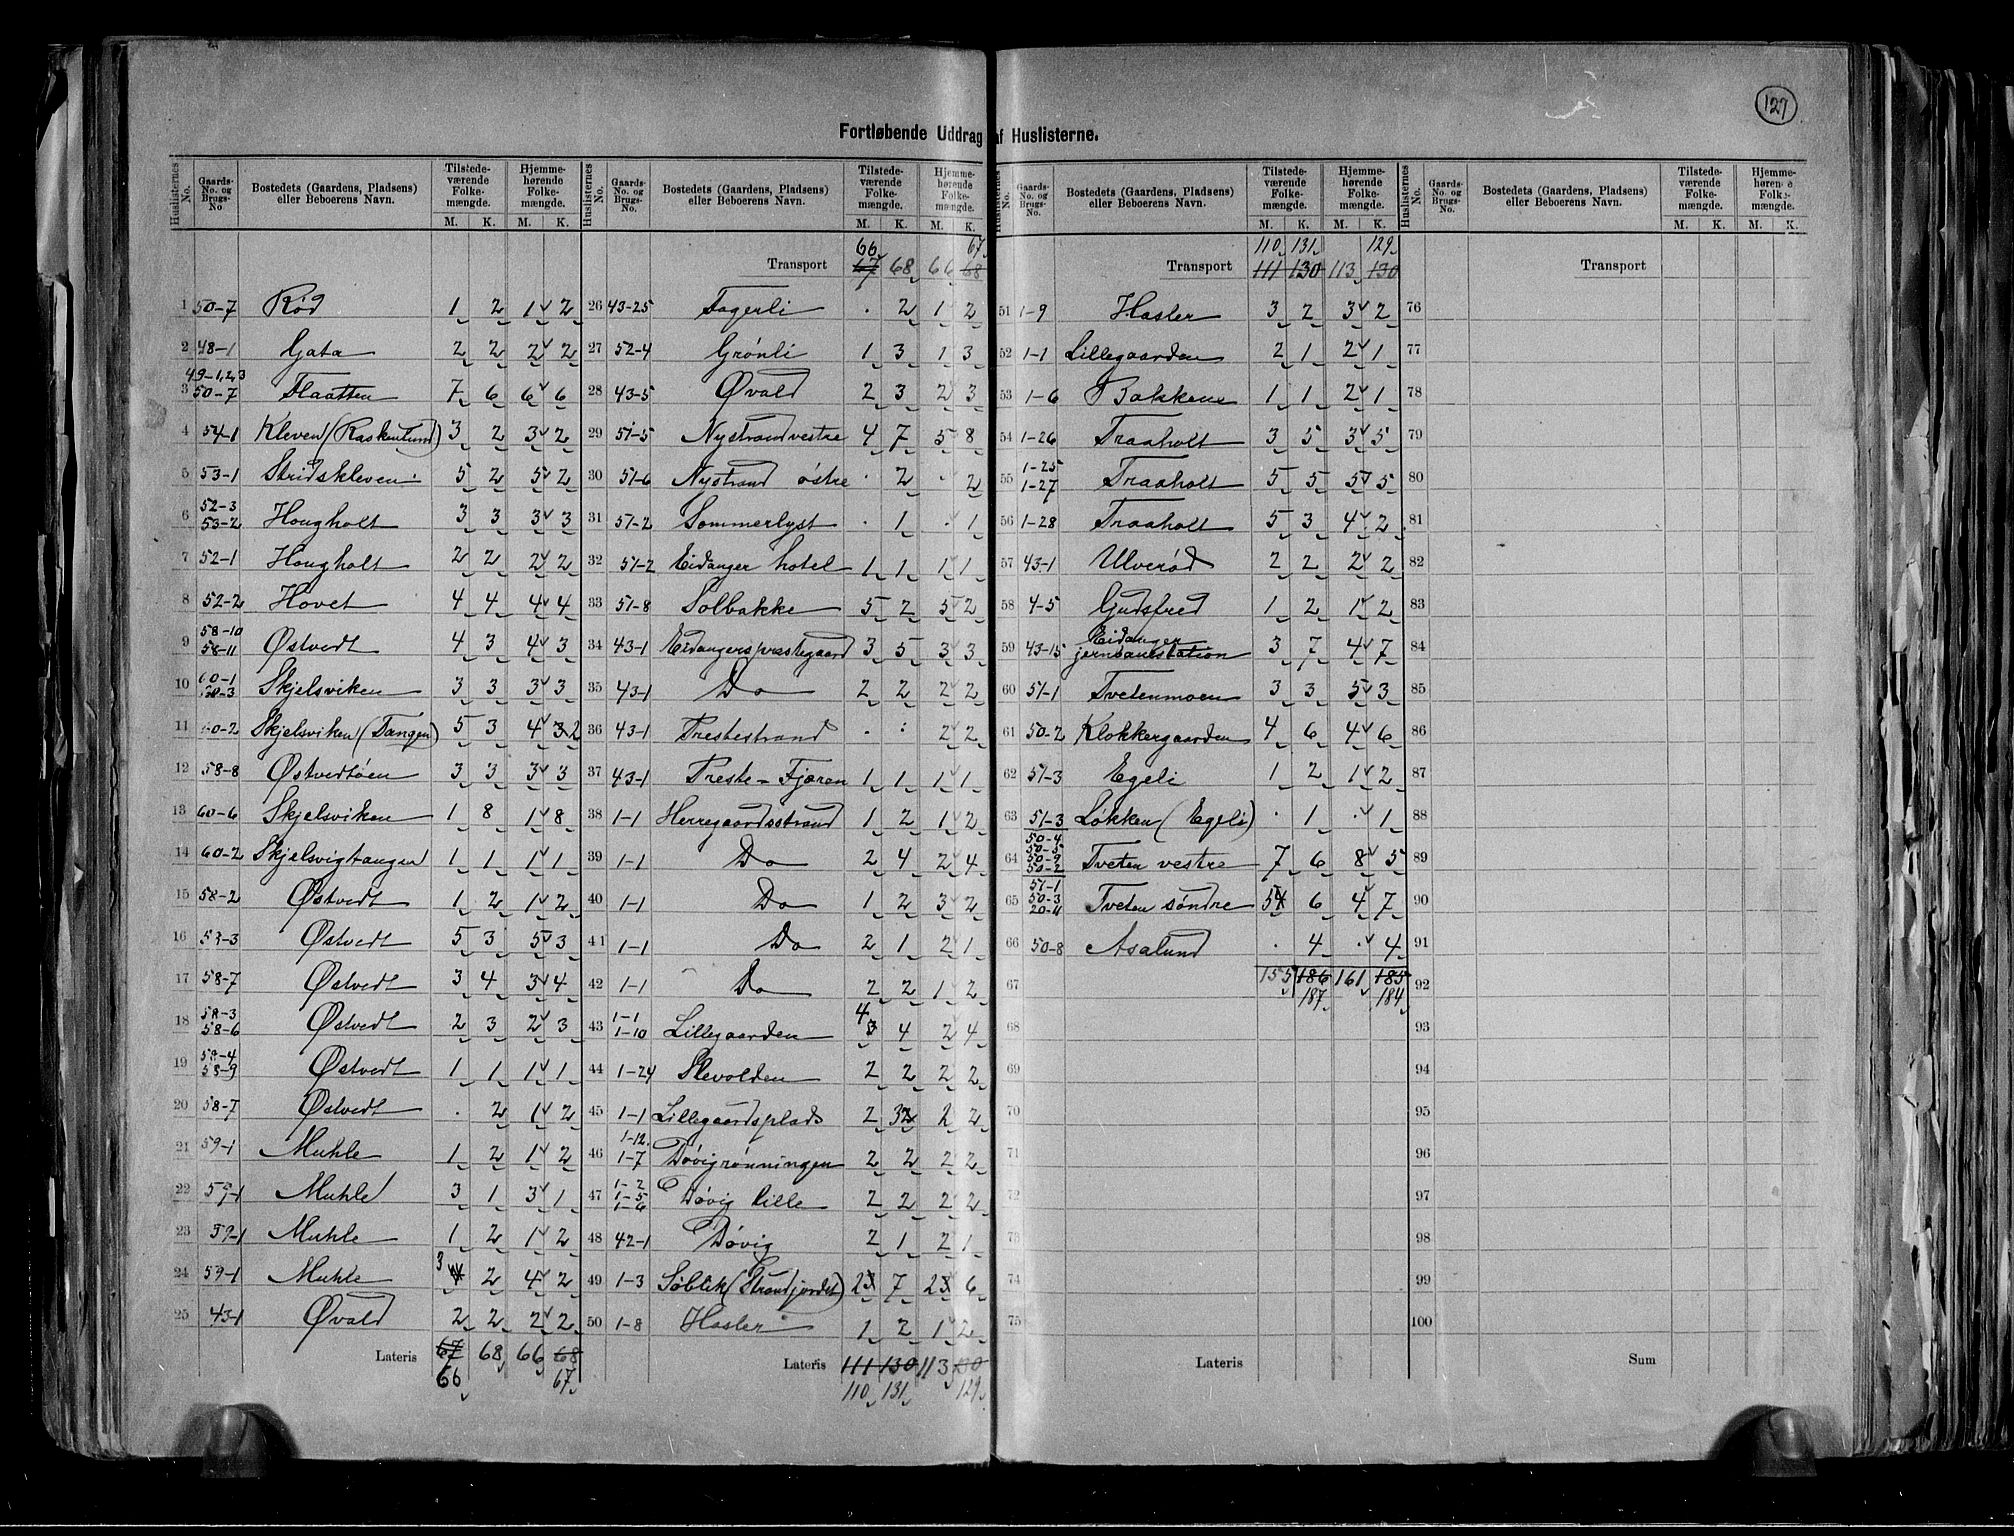 127
Fortløbende Uddrag af Huslisterne.
Huslisternes No. | Gaards-No. og Brugs-No. | Bostedets (Gaardens, Pladsens) eller Beboerens Navn. | Tilstedeværende Folkemængde. M. K. | Hjemmehørende Folkemængde. M. K.
1 50-7 Rød 1 2 1 2
2 48-1 Gata 2 2 2 2
3 49-1,2,3 50-7 Flaatten 7 6 6 6
4 54-1 Kleven (Raskenlund) 3 2 3 2
5 53-1 Stridskleven 5 2 5 2
6 52-3 53-2 Hougholt 3 3 3 3
7 52-1 Hougholt 2 2 2 2
8 52-2 Hovet 4 4 4 4
9 58-10 58-11 Østvedt 4 3 4 3
10 60-1 60-3 Skjelsviken 3 3 3 3
11 60-2 Skjelsviken (Tangen) 5 3 4 3 2
12 58-8 Østvedtøen 3 3 3 3
13 60-6 Skjelsviken 1 8 1 8
14 60-2 Skjelsvigtangen 1 1 1 1
15 58-2 Østvedt 1 2 1 2
16 58-3 Østvedt 5 3 5 3
17 58-7 Østvedt 3 4 3 4
18 58-3 58-6 Østvedt 2 3 2 3
19 59-4 58-9 Østvedt 1 1 1 1
20 58-7 Østvedt . 2 1 2
21 59-1 Muhle 1 2 1 2
22 59-1 Muhle 3 1 3 1
23 59-1 Muhle 1 2 1 2
24 59-1 Muhle 3 2 4 2
25 43-1 Øvald 2 2 2 2
Lateris 67 68 66 68
66 67
66 67
Transport 67 68 66 68
26 43-25 Fagerli . 2 1 2
27 52-4 Grønli 1 3 1 3
28 43-5 Øvald 2 3 2 3
29 51-5 Nystrand vestre 4 7 5 8
30 51-6 Nystrand østre . 2 . 2
31 51-2 Sommerlyst . 1 . 1
32 51-2 Eidanger hotel 1 1 1 1
33 51-8 Solbakke 5 2 5 2
34 43-1 Eidangerspræstegaard 3 5 3 3
35 43-1 Do 2 2 2 2
36 43-1 Prestestrand . . 2 2
37 43-1 Preste-Fjæren 1 1 1 1
38 1-1 Herregaardsstrand 1 2 1 2
39 1-1 Do 2 4 2 4
40 1-1 Do 1 2 3 2
41 1-1 Do 2 1 2 1
42 1-1 Do 2 2 1 2
43 1-1 1-10 Lillegaarden 4 3 4 2 4
44 1-24 Slevolden 2 2 2 2
45 1-1 Lillegaardsplads 2 3 2 2 2
46 1-12. 1-7 Døvigrønningen 2 2 2 2
47 1-2 1-5 1-6 Døvig lille 2 2 2 2
48 42-1 Døvig 2 1 2 1
49 1-3 Søblik (Strandjordet) 2 3 7 2 3 6
50 1-8 Hasler 1 2 1 2
Lateris 111 130 113 130
110 131 129
110 131 129
Transport 111 130 113 130
51 1-9 Hasler 3 2 3 2
52 1-1 Lillegaarden 2 1 2 1
53 1-6 Bakkene 1 1 2 1
54 1-26 Traaholt 3 5 3 5
55 1-25 1-27 Traaholt 5 5 5 5
56 1-28 Traaholt 5 3 4 2
57 43-1 Ulverød 2 2 2 2
58 4-5 Gudsfred 1 2 1 2
59 43-15 Eidanger jernbanestation 3 7 4 7
60 51-1 Tvetenmoen 3 3 5 3
61 50-2 Klokkergaarden 4 6 4 6
62 51-3 Egeli 1 2 1 2
63 51-3 Løkken (Egeli) . 1 . 1
64 50-4 50-5 50-9 50-2 Tveten vestre 7 6 8 5
65 51-1 50-3 20-11 Tveten søndre 5 4 6 4 7
66 50-8 Asalund . 4 . 4
67 155 186 161 185
187 184
68
69
70
71
72
73
74
75
Lateris
Transport
76
77
78
79
80
81
82
83
84
85
86
87
88
89
90
91
92
93
94
95
96
97
98
99
100
Sum